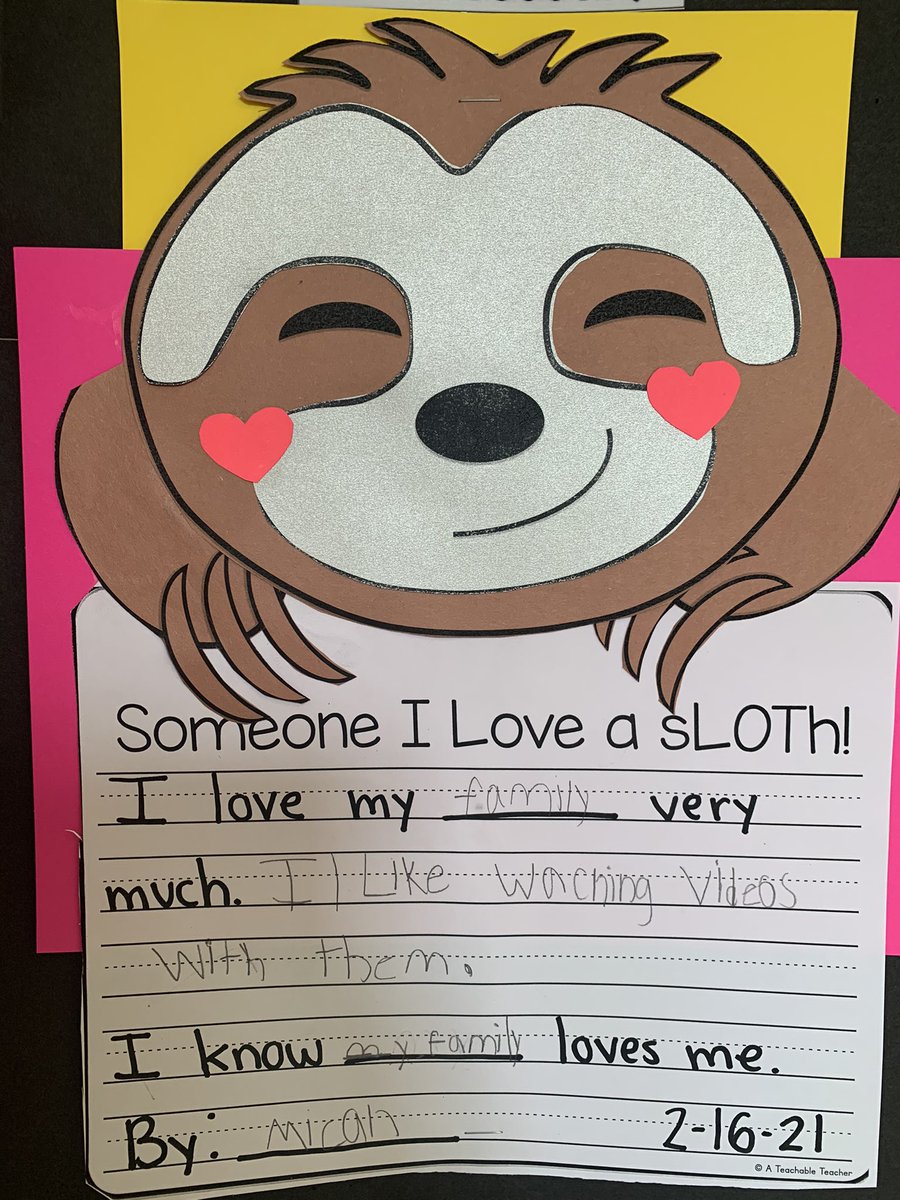 Someone I Love a sLOTh!
I love my family very
much. I Like Waching Videos
With them.
I know my family loves me.
By: Mirah
2-16-21
© A Teachable Teacher